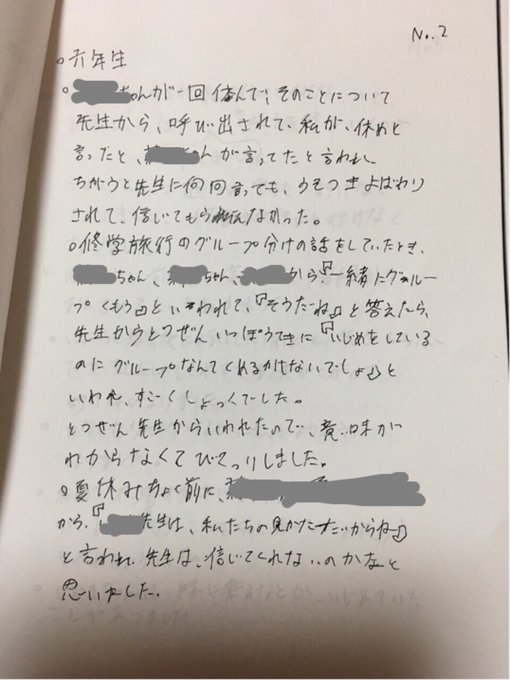 No.2
○六年生
○ちゃんが一回休んで、そのことについて
先生から、呼び出されて、私が、休めと
言ったと、ちゃんが言ってたと言われ、
ちがうと先生に何回言っても、うそつきよばわり
されて、信じてもらえなかった。
○修学旅行のグループ分けの話をしていたとき、
ちゃん、ちゃん、から『一緒にグループ
くもう』といわれて、『そうだね』と答えたら、
先生からとつぜんいっぽうてきに『いじめをしている
のにグループなんてくめるわけないでしょ』と
いわれ、すごくしょっくでした。
とつぜん先生からいわれたので、意味が
わからなくてびっくりしました。
○夏休みちょく前に、
から、『先生は、私たちの見かただからね』
と言われ、先生は、信じてくれないのかなと
思いました。